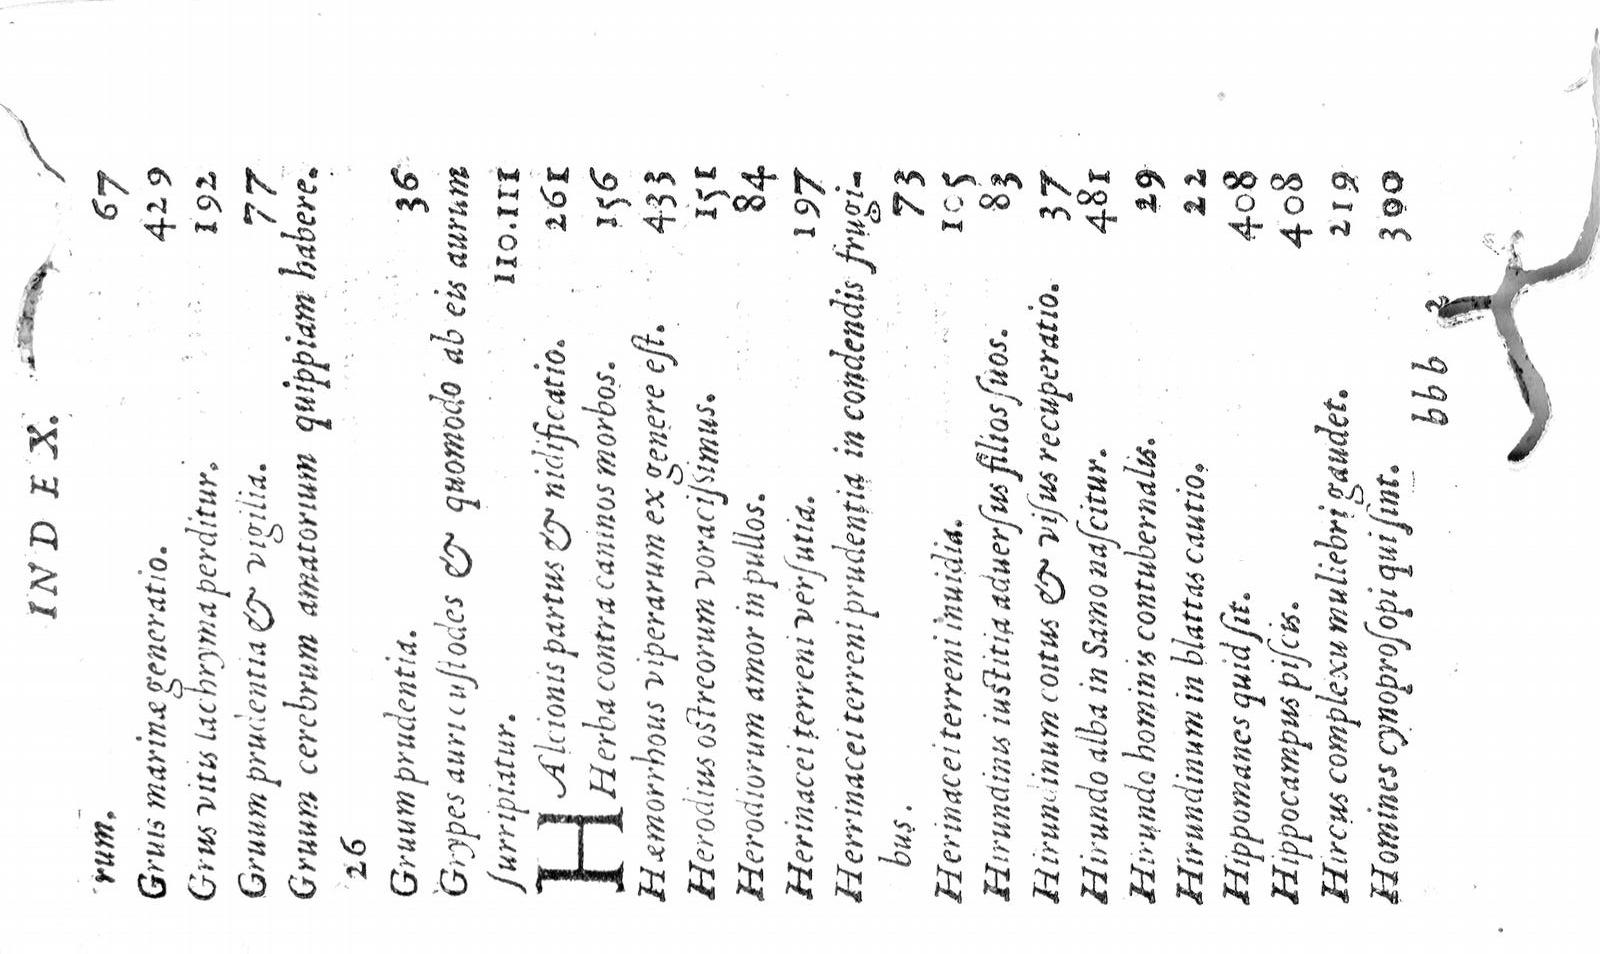 INDEX.
rum. 67
Gruis marinæ generatio. 429
Grus vitis lachryma perditur. 192
Gruum prudentia & vigilia. 77
Gruum cerebrum amatorium quippiam habere.
26
Gruum prudentia. 36
Grypes auri cuſtodes & quomodo ab eis aurum
ſurripiatur. 110.111
HAlcionis partus & nidificatio. 261
Herba contra caninos morbos. 156
Hæmorrhous viperarum ex genere eſt. 433
Herodius oſtreorum voraciſsimus. 151
Herodiorum amor in pullos. 84
Herinacei terreni verſutia. 197
Herrinacei terreni prudentia in condendis frugi-
bus. 73
Herinacei terreni inuidia. 105
Hirundinis iuſtitia aduerſus filios ſuos. 83
Hirundinum coitus & viſus recuperatio. 37
Hirundo alba in Samo naſcitur. 481
Hirundo hominis contubernalis. 29
Hirundinum in blattas cautio. 22
Hippomanes quid ſit. 408
Hippocampus piſcis. 408
Hircus complexu muliebri gaudet. 219
Homines cynoproſopi qui ſint. 300
bbb 2